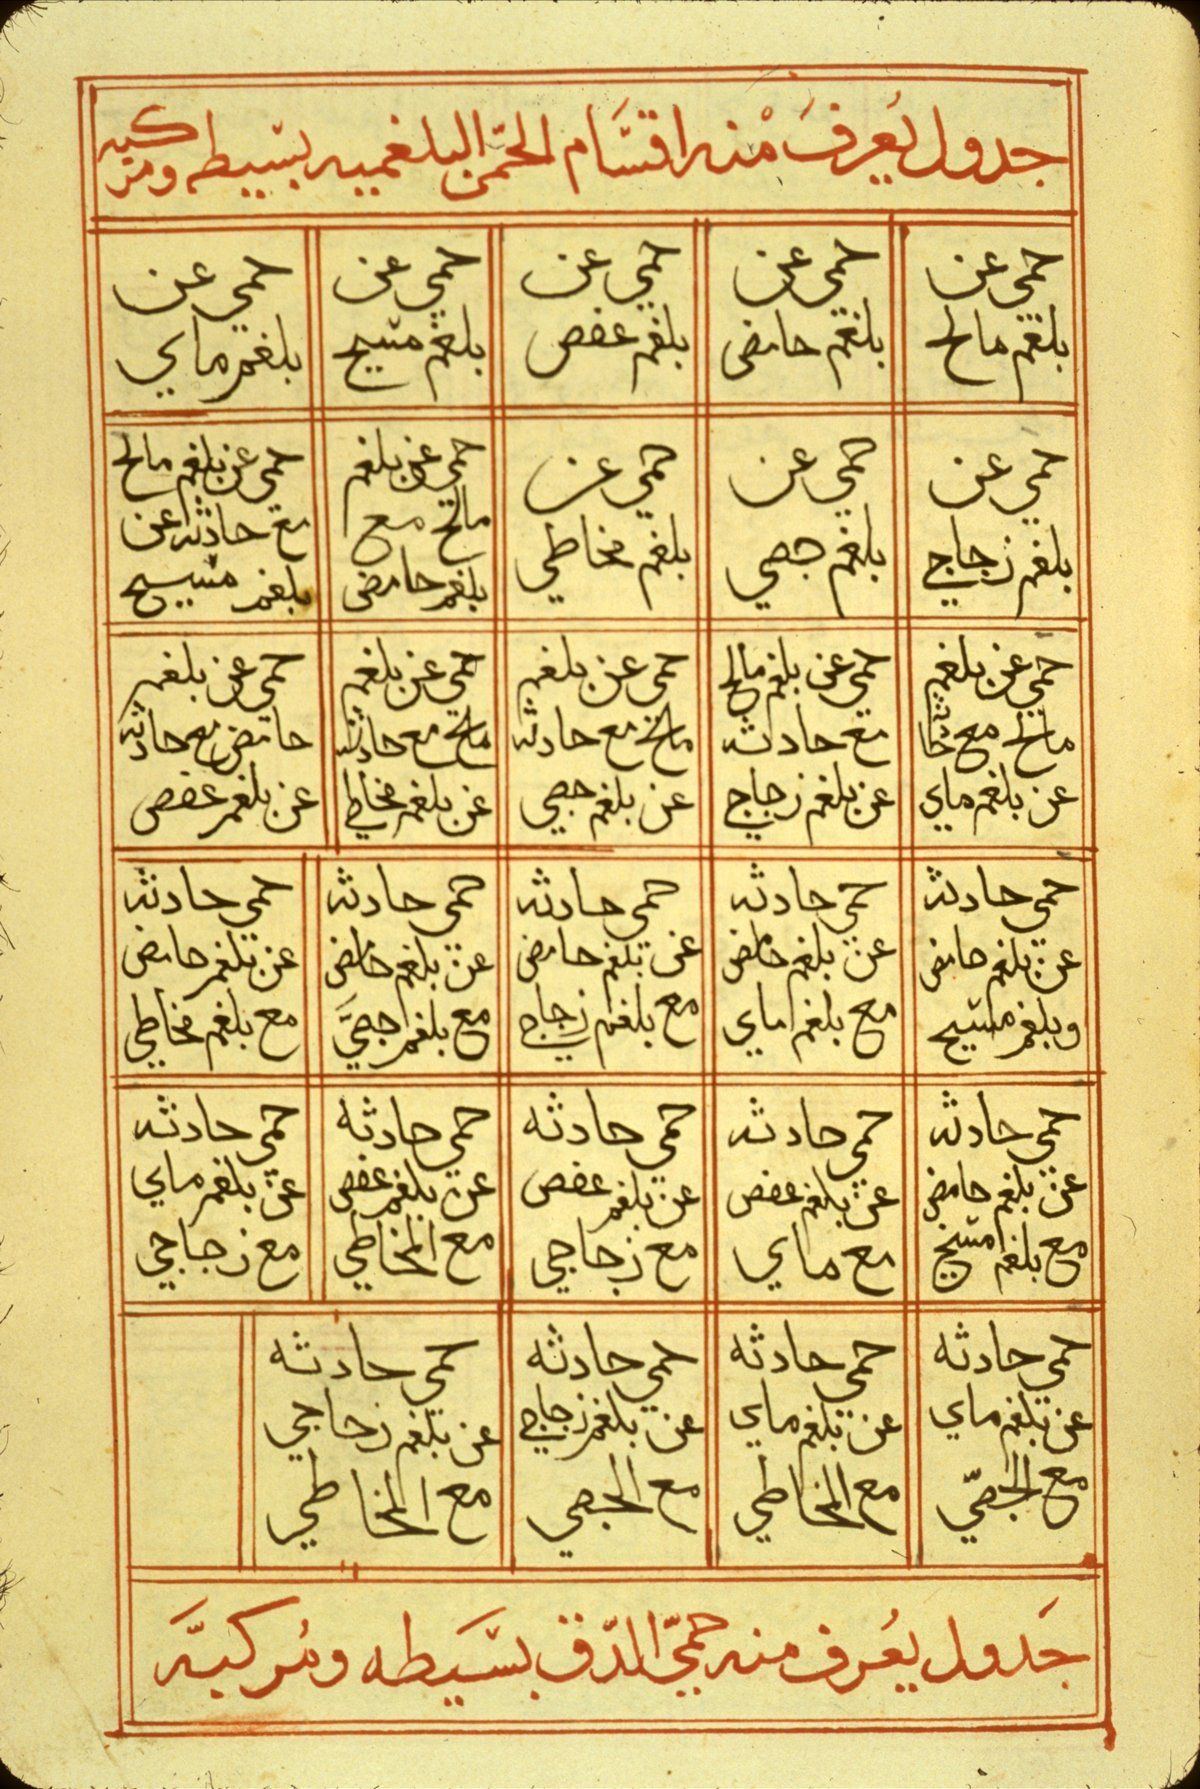 جدول يعرف منه اقسام الحمى البلغميه بسيطه ومركبه
حمى عن
بلغم مالح
حمى عن
بلغم حامض
حمى عن
بلغم عفص
حمى عن
بلغم مسيح
حمى عن
بلغم ماي
حمى عن
بلغم زجاجي
حمى عن
بلغم جصي
حمى عن
بلغم مخاطي
حمى عن بلغم
مالح مع
بلغم حامض
حمى عن بلغم مالح
مع حادثه عن
بلغم مسيح
حمى عن بلغم
مالح مع
عن بلغم ماي
حمى عن بلغم مالح
مع حادثه
عن بلغم زجاجي
حمى عن بلغم
مالح مع حادثه
عن بلغم جصي
حمى عن بلغم
مالح مع حادثه
عن بلغم مخاطي
حمى عن بلغم
حامض مع حادثه
عن بلغم عفص
حمى حادثه
عن بلغم حامض
وبلغم مسيح
حمى حادثه
عن بلغم حامض
مع بلغم ماي
حمى حادثه
عن بلغم حامض
مع بلغم زجاجي
حمى حادثه
عن بلغم حامض
مع بلغم جصي
حمى حادثه
عن بلغم حامض
مع بلغم مخاطي
حمى حادثه
عن بلغم حامض
مع بلغم مسيح
حمى حادثه
عن بلغم عفص
مع ماي
حمى حادثه
عن بلغم عفص
مع زجاجي
حمى حادثه
عن بلغم عفص
مع المخاطي
حمى حادثه
عن بلغم ماي
مع زجاجي
حمى حادثه
عن بلغم ماي
مع الجصي
حمى حادثه
عن بلغم ماي
مع المخاطي
حمى حادثه
عن بلغم زجاجي
مع الجصي
حمى حادثه
عن بلغم زجاجي
مع المخاطي
جدول يعرف منه حمى الدق بسيطه ومركبه